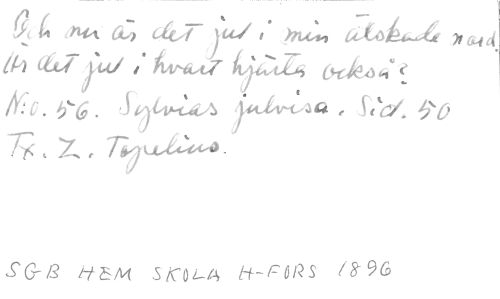 Och nu är det jul i min älskade nord.
Är det jul i hvart hjärta också?
N:o. 56. Sylvias julvisa. Sid. 50
Tx. Z. Topelius.
SGB HEM SKOLA H-FORS 1896